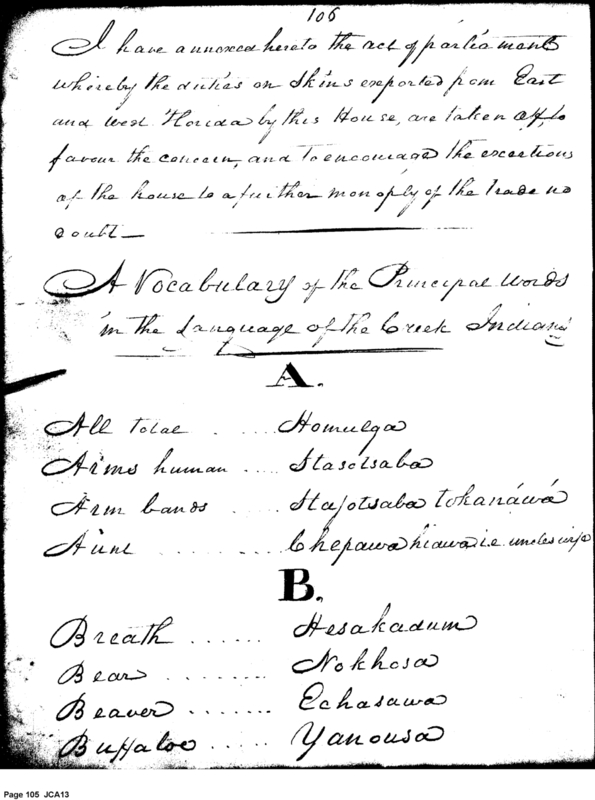 106
I have annexed hereto the act of parliament
whereby the duties on Skins exported from East
and West Florida by this House, are taken off, to
favour the concern, and to encourage the exertions
of the house to a further monoply of the Trade no
doubt —
A Vocabulary of the Principal Words
in the Language of the Creek Indians
A.
All total . . . . . Homulga
Arms human . . . . Stasotsaba
Arm bands . . . . . Stasotsaba tokanáwá
Aunt . . . . . . . . Chepawa hiawa i.e. uncles wife
B.
Breath . . . . . . Hesakadum
Bear . . . . . . . . Nokhosa
Beaver . . . . . . . Echasawa
Buffaloe . . . . . Yanousa
Page 105 JCA13